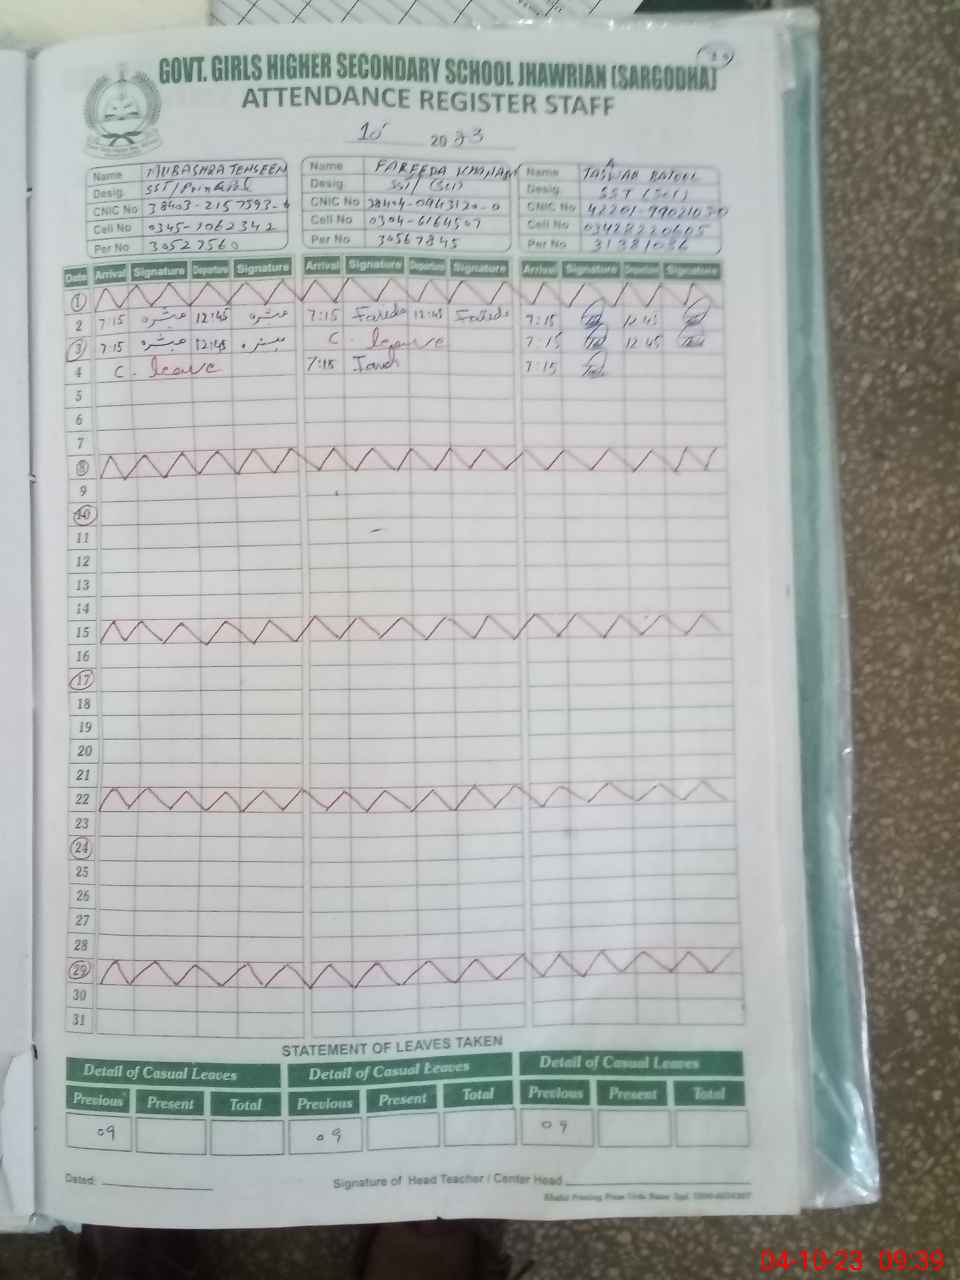 GOVT. GIRLS HIGHER SECONDARY SCHOOL JHAWRIAN (SARGODHA)
ATTENDANCE REGISTER STAFF
10 2023
Name MUBASHRA TEHSEEN Name FAREEDA KHANAM Name
Desig. SST/Principal Desig. SST (Sci) Desig. SST (Sci)
CNIC No 38403-2157593- CNIC No 38404-0943120-0 CNIC No
Cell No 0345-7062342 Cell No 0304-6164507 Cell No 03428220605
Per No 30527560 Per No 30567845 Per No 31381086
Date Arrival Signature Departure Signature Arrival Signature Departure Signature Arrival Signature Departure Signature
1
2 7:15 مبشرہ 12:45 مبشرہ 7:15 Fareeda 12:45 Fareeda 7:15 12 45
3 7:15 مبشرہ 12:45 مبشرہ C. leave 7:15 12 45
4 C. leave 7:15 7:15
5
6
7
8
9
10
11
12
13
14
15
16
17
18
19
20
21
22
23
24
25
26
27
28
29
30
31
STATEMENT OF LEAVES TAKEN
Detail of Casual Leaves Detail of Casual Leaves Detail of Casual Leaves
Previous Present Total Previous Present Total Previous Present Total
09 09 09
Dated: Signature of Head Teacher / Center Head
04-10-23 09:39